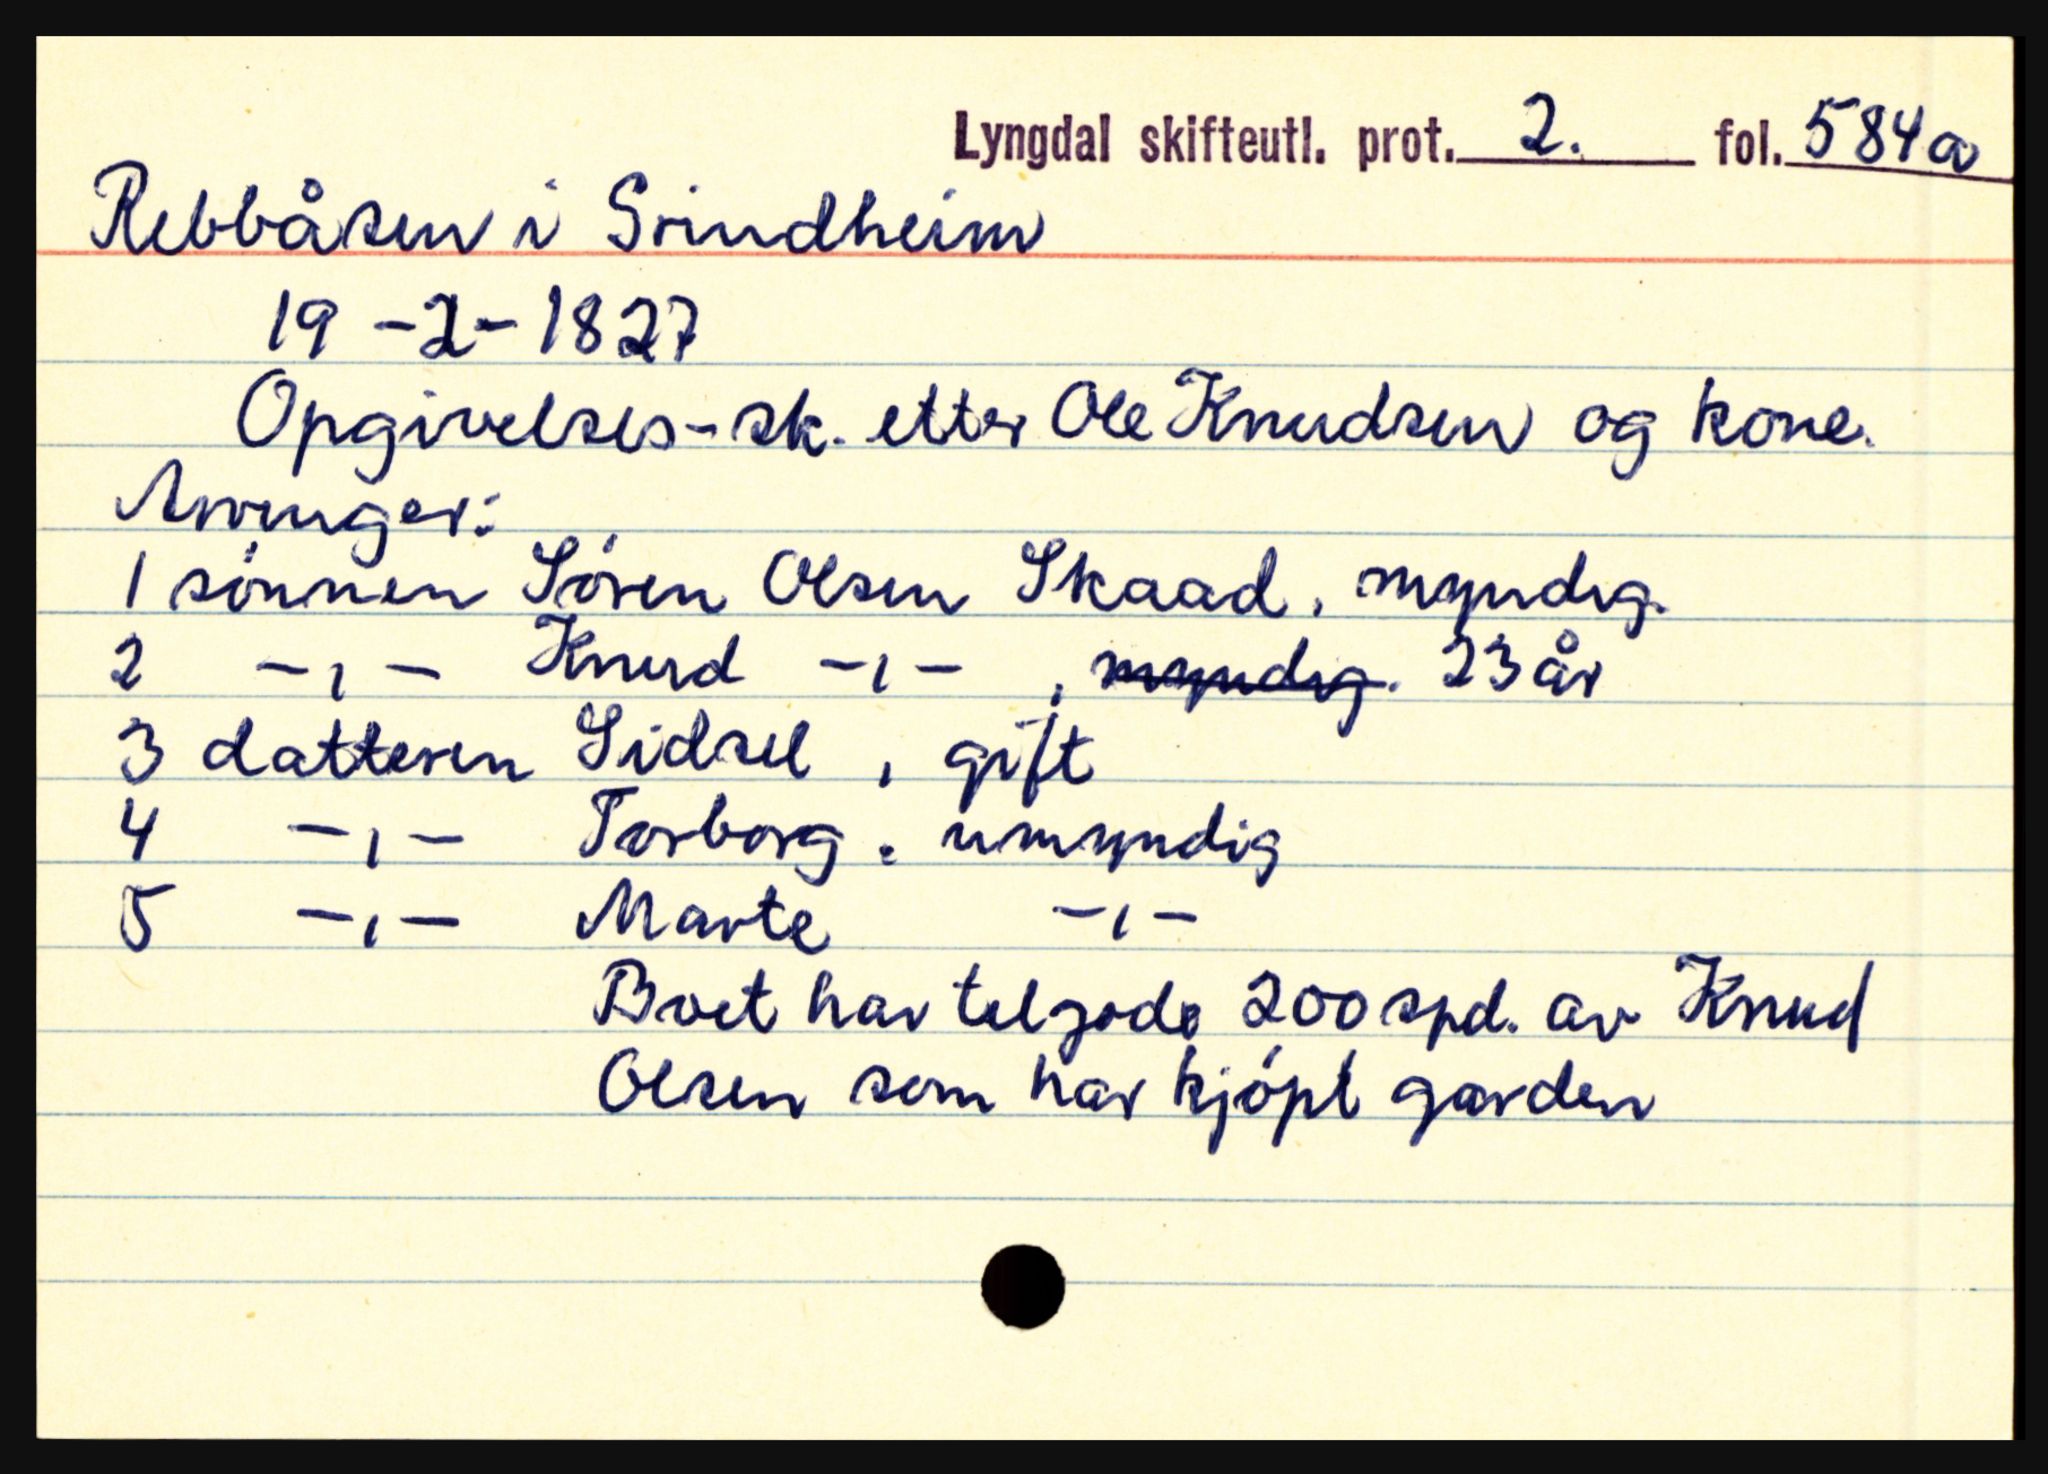 Lyngdal skifteutl. prot. 2. fol. 584a
Rebbåsen i Grindheim
19 -2- 1827
Opgivelses-sk. etter Ole Knudsen og kone.
Arvinger:
1 sønnen Søren Olsen Skaad, myndig.
2 -,- Knud -,- , myndig. 23 år
3 datteren Sidsel , gift
4 -,- Torborg , umyndig
5 -,- Marte -,-
Boet har telgode 200 spd. av Knud
Olsen som har kjøpt garden